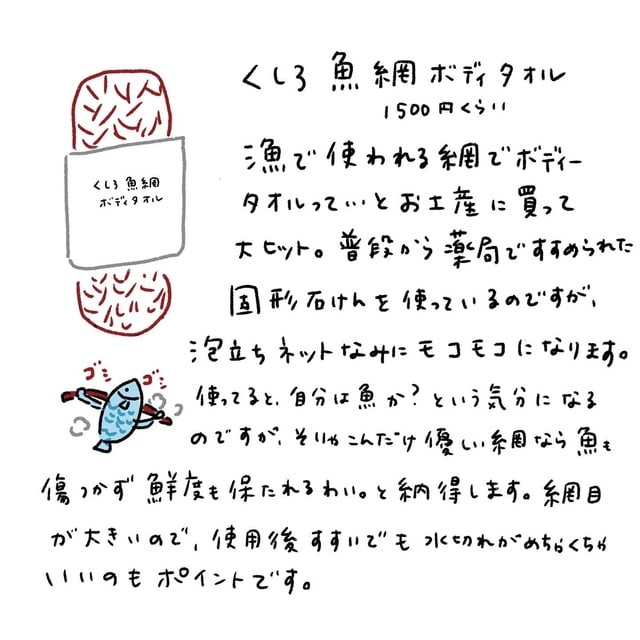 くしろ 魚網 ボディタオル
1500円くらい
くしろ 魚網
ボディタオル
漁で使われる網でボディー
タオルっていいとお土産に買って
大ヒット。普段から薬局ですすめられた
固形石けんを使っているのですが、
泡立ちネットなみにモコモコになります。
ゴシ ゴシ
使ってると、自分は魚か?という気分になる
のですが、そりゃこんだけ優しい網なら魚も
傷つかず鮮度も保たれるわい。と納得します。網目
が大きいので、使用後すすいでも水切れがめちゃくちゃ
いいのもポイントです。